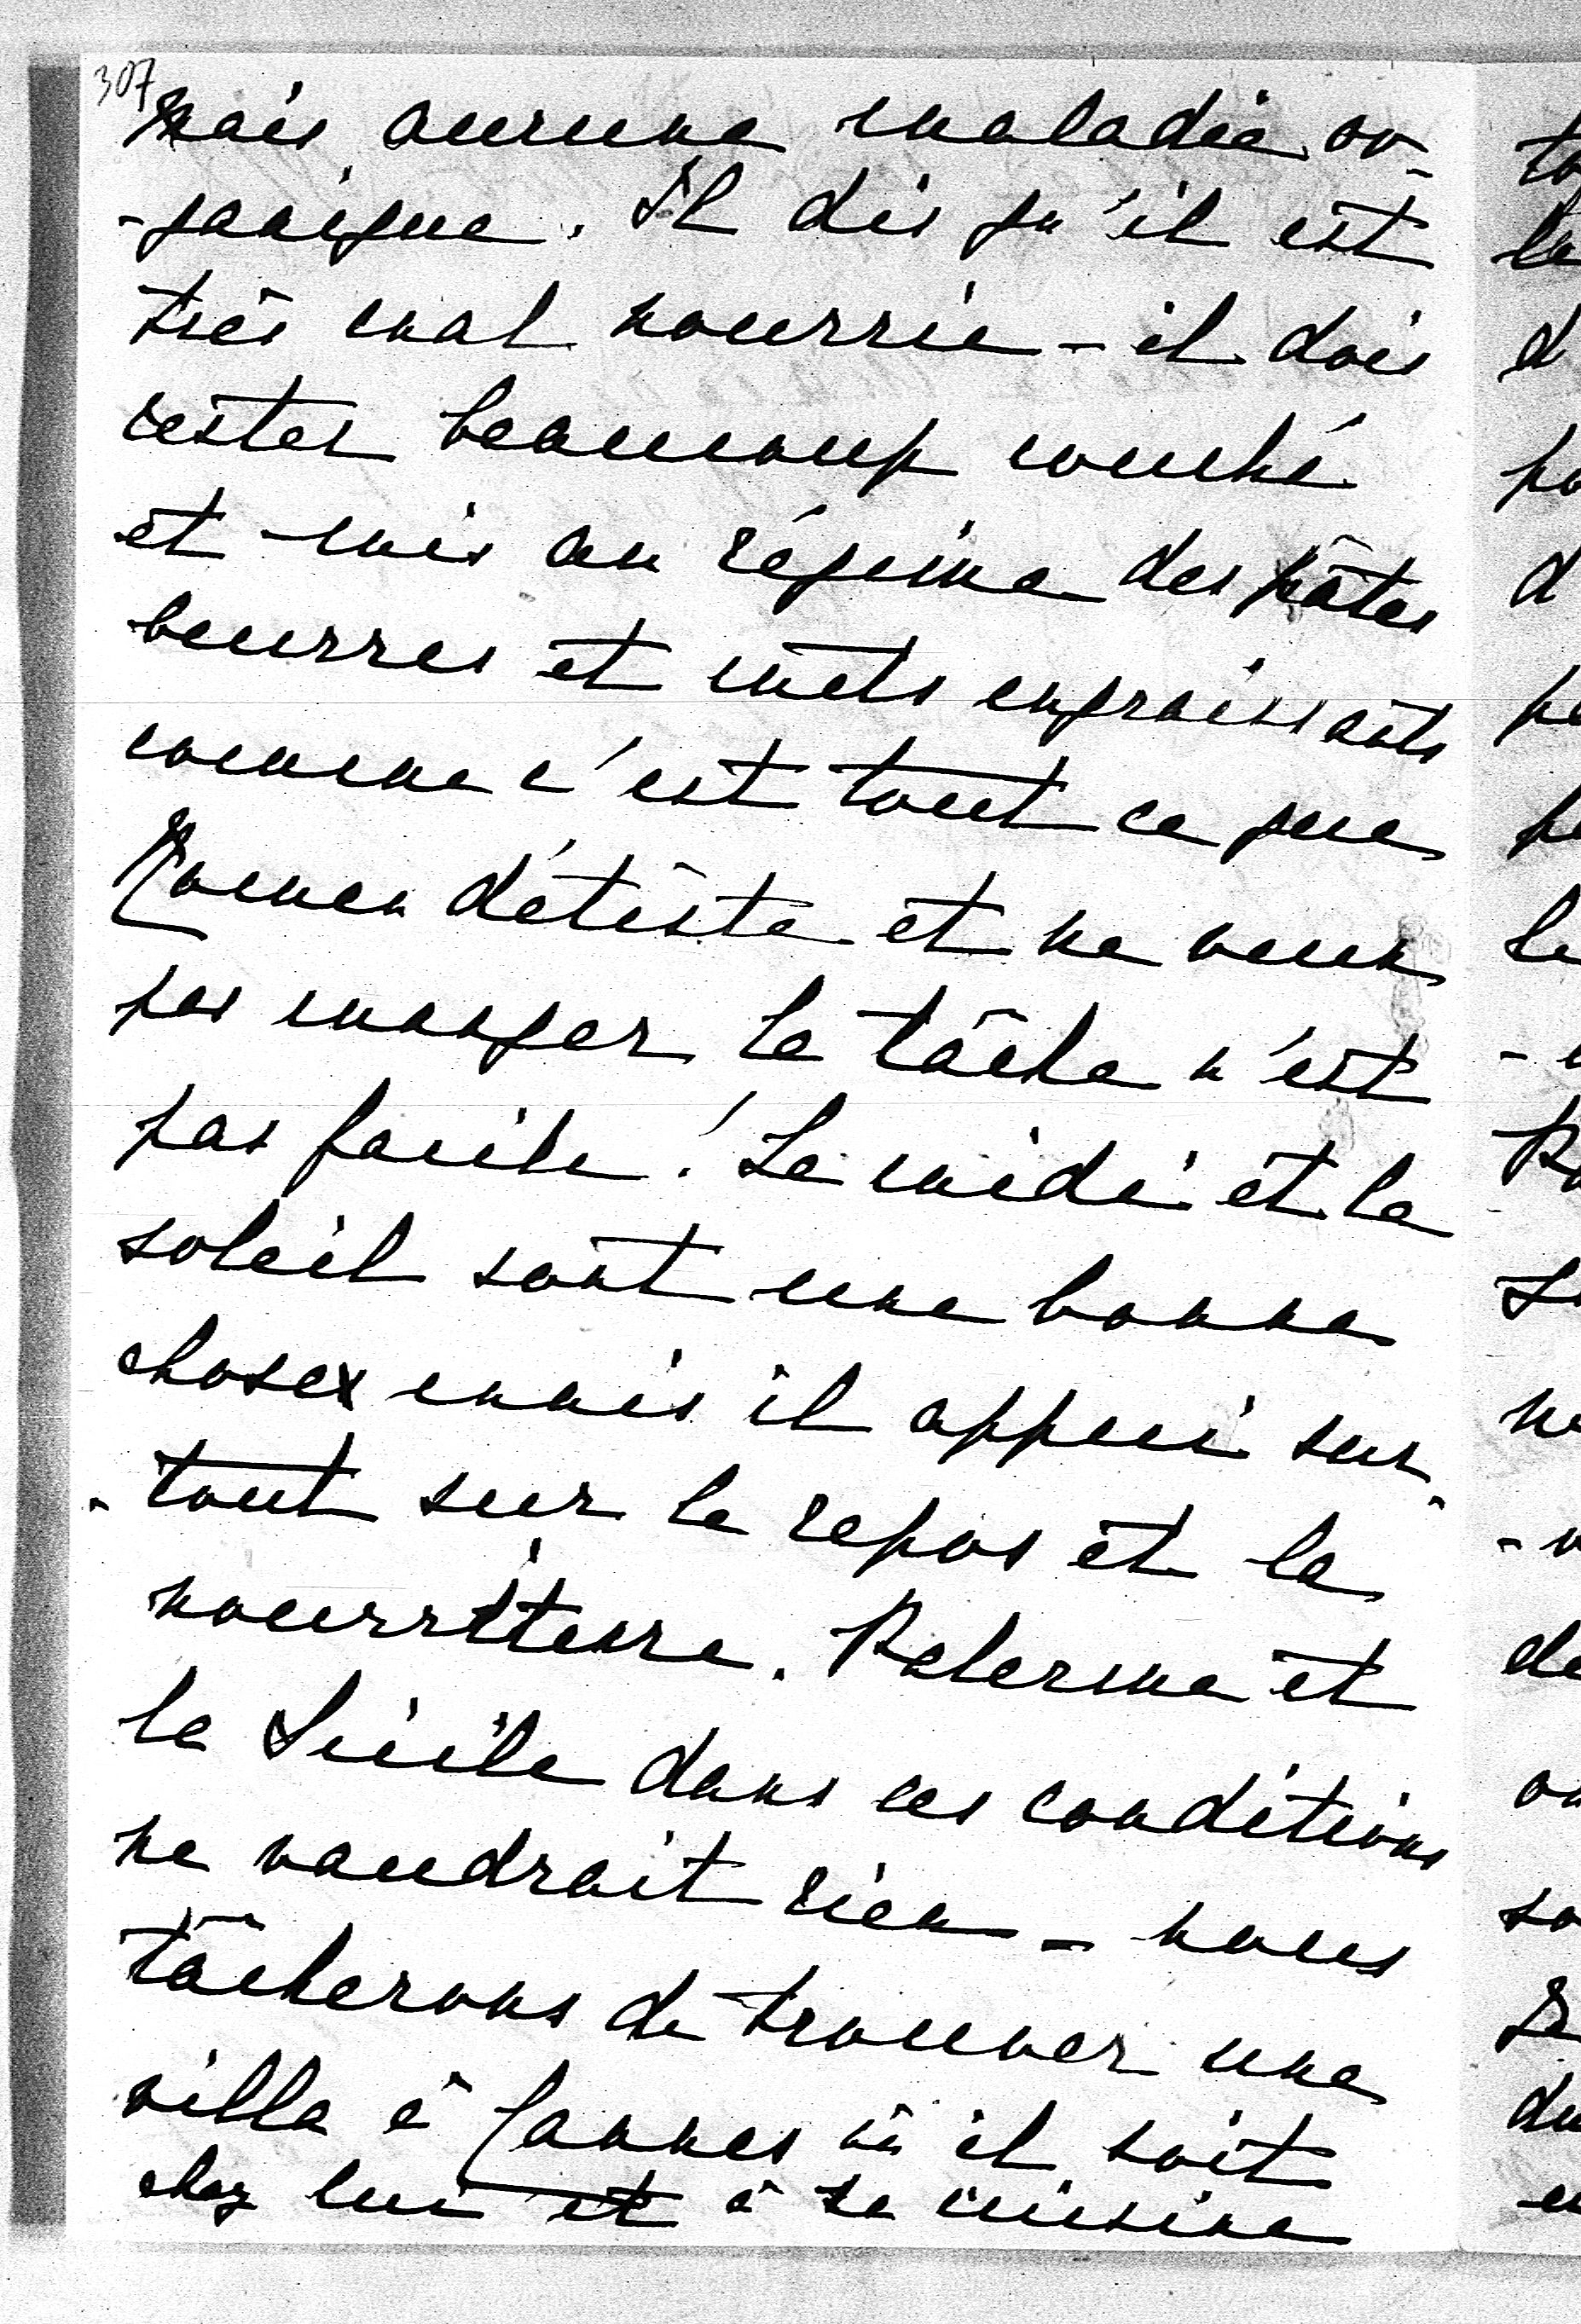 307
mais aucune maladie or-
-ganique. Il dis qu'il est
très mal nourrie - il dois
rester beaucoup couché
et mis au régime des pâtes
beurres et mets engraissants
comme c'est tout ce que
Roman détèste et ne veux
pas manger la tâche n'est
pas facile! Le midi et le
soleil sont une bonne
chose mais il appui sur-
-tout sur le repos et la
nourriture. Palerme et
la Sicile dans ces conditions
ne vaudrait rien - nous
tâcherons de trouver une
villa à Cannes où il soit
chez lui et à sa cuisine